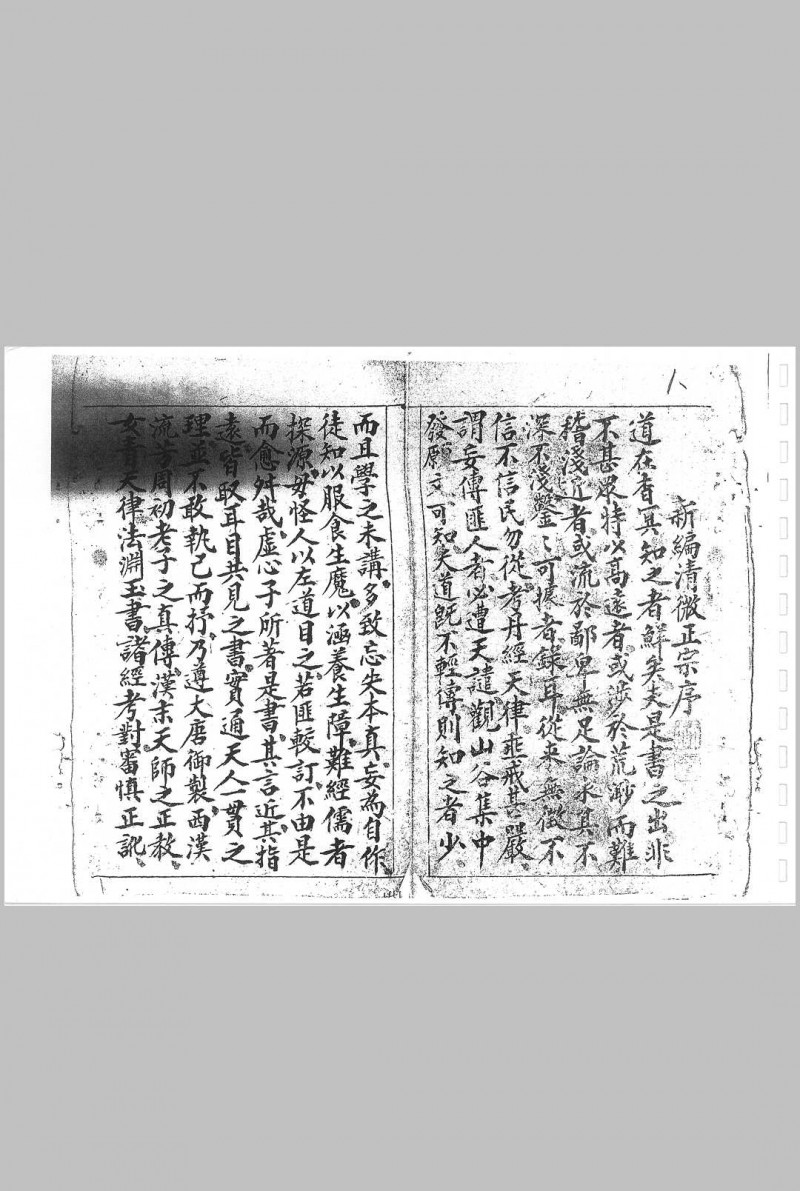 新編清微正宗序
道在者真知之者鮮矣夫是書之出非
不甚眾特以高遠者或涉於荒渺而難
稽淺近者或流於鄙卑無足論求其不
深不淺鑿〻可據者錄耳從来無徵不
信不信民勿從考丹經天律垂戒甚嚴
謂妄傳匪人者必遭天譴觀山谷集中
發願文可知矣道既不輕傳則知之者少
而且學之未講多致忘失本真妄為自作
徒知以服食生魔以涵養生障難經儒者
探源毋怪人以左道目之若匪較訂不由是
而愈舛哉虛心子所著是書其言近其指
遠皆取耳目共見之書實通天人一貫之
理並不敢執己而抒乃遵大唐御製西漢
流芳周初老子之真傳漢末天師之正教
女青天律法淵玉書諸經考對審慎正訛